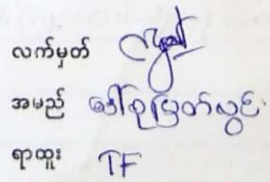 လက်မှတ်
အမည် ဒေါ်စုမြတ်လွင်
ရာထူး TF